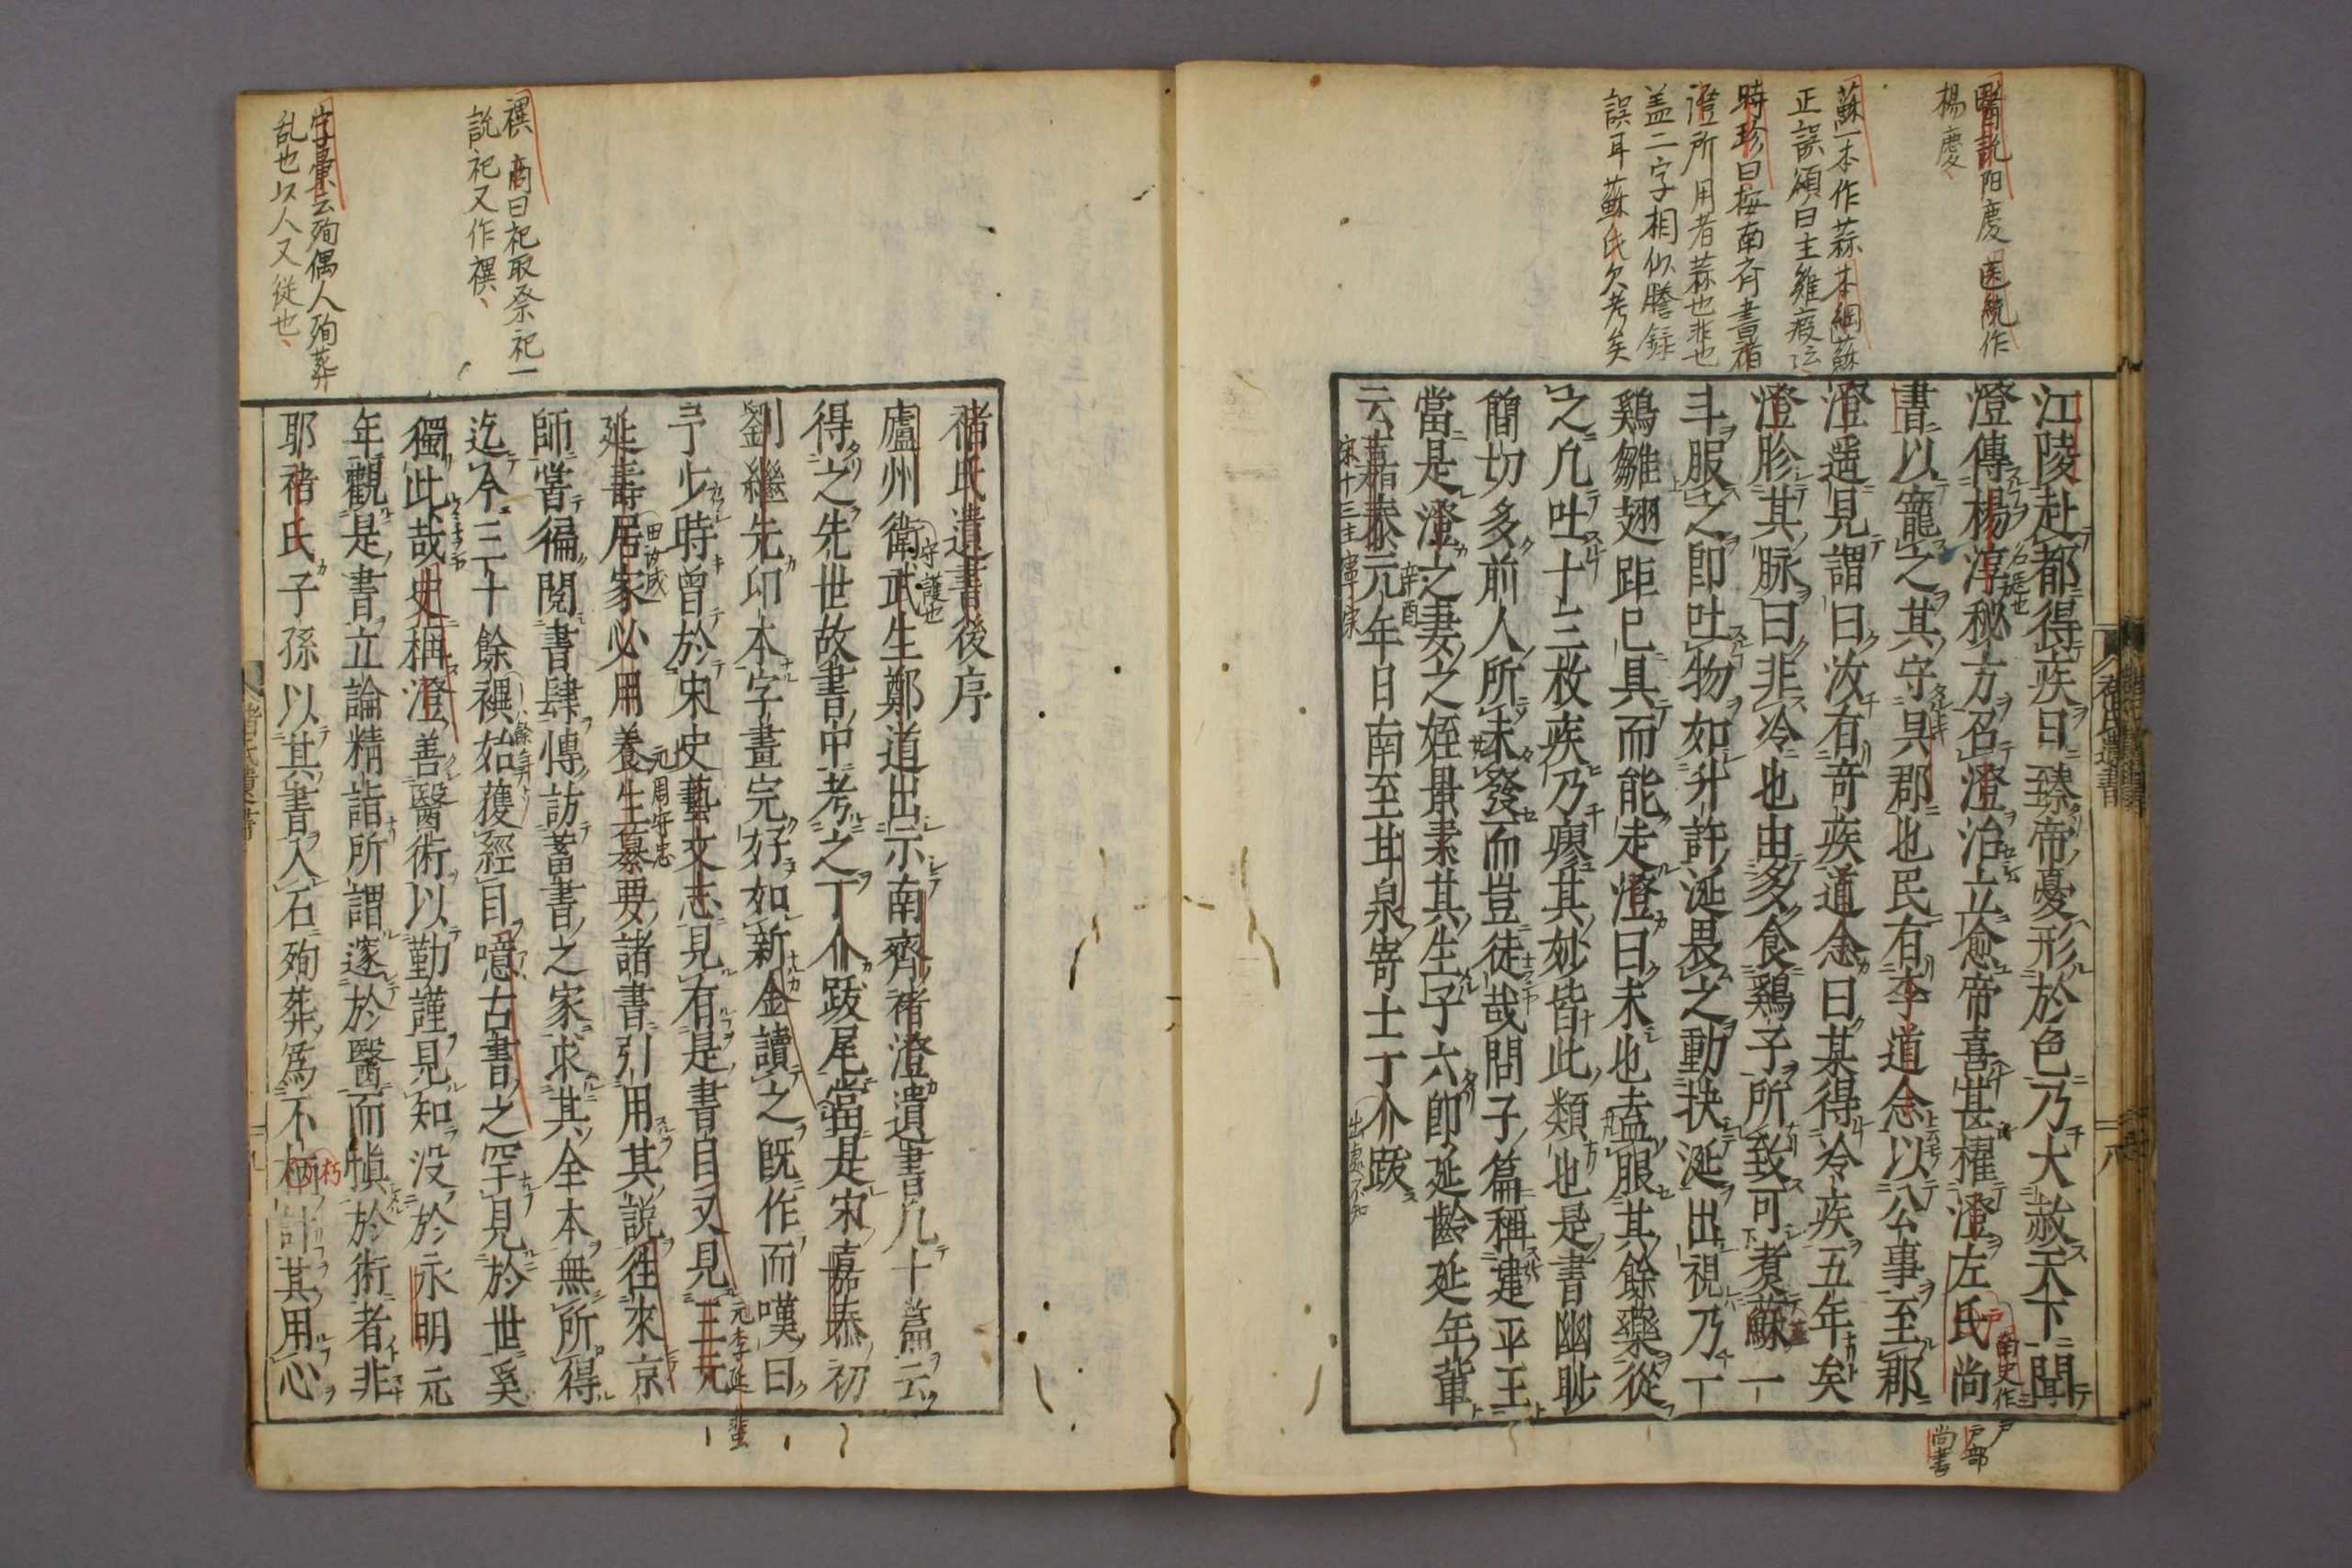 醫說阳慶医統作
楊慶
蘇一本作蒜本綱蘇
正誤頌曰主雞瘕
時珍曰按南齊書褚
澄所用者蒜也非也
盖二字相似謄録
誤耳蘇氏欠考矣
江陵赴都得疾日臻帝憂形於色乃大赦天下聞
澄傳楊淳秘方召澄治立愈帝喜甚櫂澄左氏尚
書以寵之其守吳郡也民有李道念以公事至郡
澄遥見謂曰汝有奇疾道念曰某得冷疾五年矣
澄胗其脉曰非冷也由多食鷄子所致可煑蘇一
斗服之卽吐物如升許涎裹之動抉涎出視乃一
鷄雛翅距已具而能走澄曰未也盍服其餘藥從
之凡吐十三枚疾乃瘳其妙皆此類也是書幽眇
簡切多前人所未發而豈徒哉問子篇稱建平王
當是澄之妻之姪景素其生子六卽延齡延年輩
云嘉泰元年日南至甘泉寄士丁介跋
名慶也
南史作戸
戸部
尚書
辛酉
宋十三主寧宗
出處不知
褚氏遺書
八
禩 商曰祀取祭祀一
說祀又作禩
字彙云殉偶人殉葬
乱也以人又從也
褚氏遺書後序
廬州衛武生鄭道出示南齊褚澄遺書凡十篇云
得之先世故書中考之丁介跋尾當是宋嘉泰初
劉繼先印本字畫完好如新金讀之旣作而嘆曰
予少時曾於宋史藝文志見有是書目又見三元
延壽居家必用養生纂要諸書引用其說往來京
師嘗徧閱書肆慱訪蓄書之家求其全本無所得
迄今三十餘禩始獲經目噫古書之罕見於世奚
獨此哉史稱澄善醫術以勤謹見知没於永明元
年觀是書立論精詣所謂邃於醫而愼於術者非
耶褚氏子孫以其書入石殉葬爲不朽計其用心
守護也
田汝成
元周守忠
元李延
朽
褚氏遺書